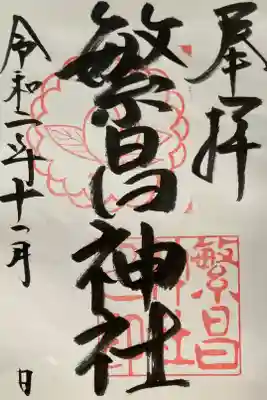 奉拝
繁昌神社
繁昌神社之印
令和二年十一月 日